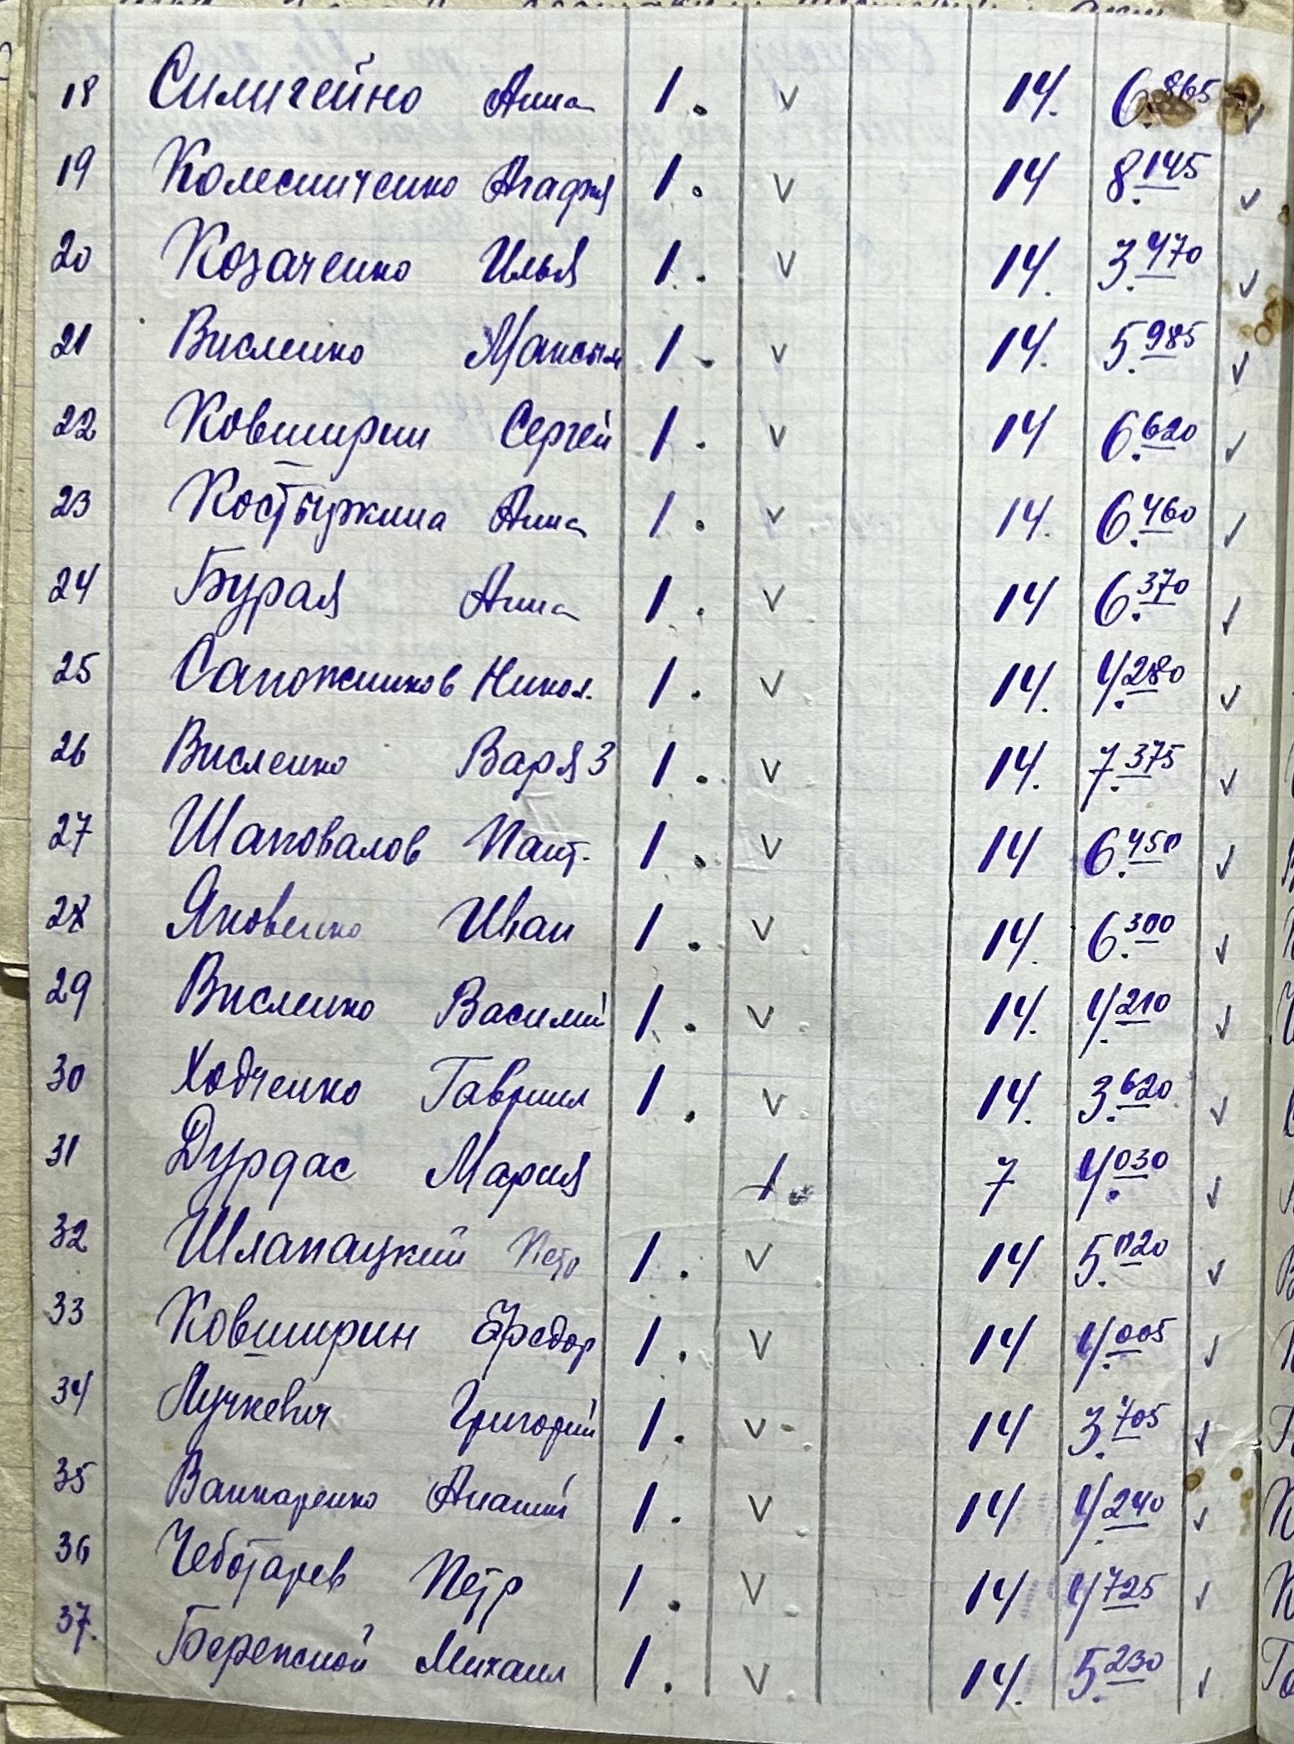 18 Силигейно Анна 1. v 14. 6.865 v
19 Колесниченко Агафья 1. v 14 8.145 v
20 Козаченко Илья 1. v 14. 3.470 v
21 Висленко Максим 1. v 14. 5.985 v
22 Ковширин Сергей 1. v 14 6.620 v
23 Костыржина Анна 1. v 14. 6.460 v
24 Бурая Анна 1. v 14 6.370 v
25 Сапожников Никол. 1. v 14. 4.280 v
26 Висленко Варя 3 1. v 14. 7.375 v
27 Шаповалов Пант. 1. v 14 6.450 v
28 Яковенко Иван 1. v 14. 6.300 v
29 Висленко Василий 1. v 14. 4.210 v
30 Ходченко Гавриил 1. v 14. 3.620 v
31 Дурдас Мария 1. 7 4.030 v
32 Шлапацкий Петр 1. v 14 5.020 v
33 Ковширин Фредор 1. v 14 4.005 v
34 Лучкевич Григорий 1. v 14 3.705 v
35 Ваккаренко Ананий 1. v 14 4.240 v
36 Чеботарев Петр 1. v 14 4.725 v
37. Бережной Михаил 1. v 14. 5.230 v